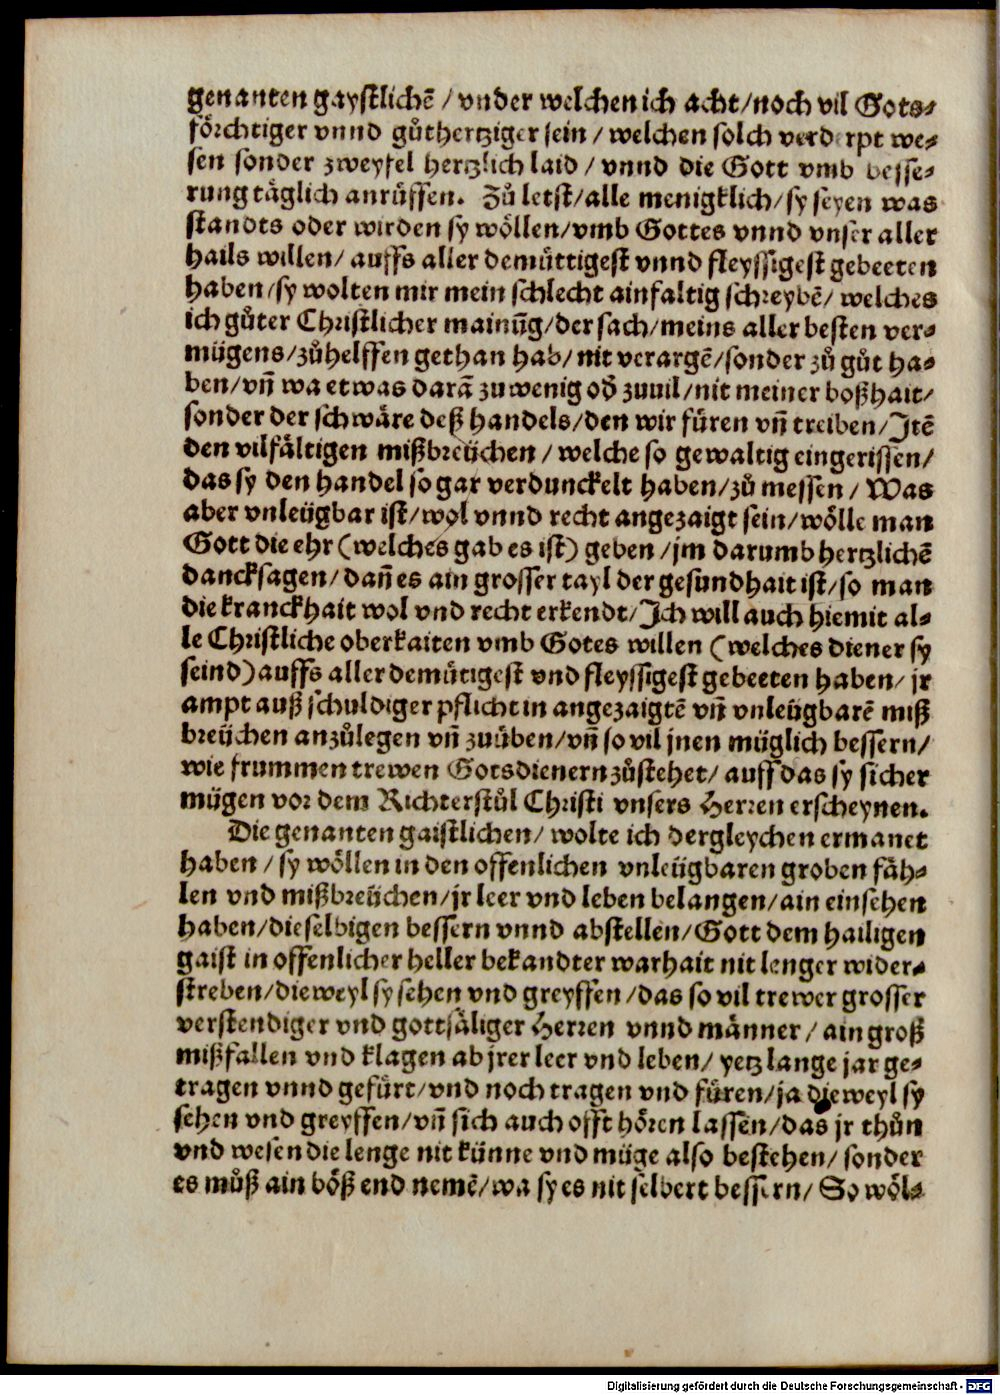 genanten gaystlichē / vnder welchen ich acht/noch vil Gots⸗
förchtiger vnnd gůthertziger sein / welchen solch verderpt we⸗
sen sonder zweyfel hertzlich laid / vnnd die Gott vmb besse⸗
rung täglich anrüffen. Zů letst/alle menigklich/sy seyen was
standts oder wirden sy wöllen/vmb Gottes vnnd vnser aller
hails willen/ auffs aller demüttigest vnnd fleyssigest gebeeten
haben/sy wolten mir mein schlecht ainfaltig schreybē/ welches
ich gůter Christlicher mainūg/der sach/meins aller besten ver⸗
mügens/zůhelffen gethan hab/ nit verargē/sonder zů gůt ha⸗
ben/vñ wa etwas darā zu wenig oď zuuil/nit meiner boßhait/
sonder der schwäre deß handels/den wir füren vñ treiben/Itē
den vilfältigen mißbreüchen / welche so gewaltig eingerissen/
das sy den handel so gar verdunckelt haben/zů messen / Was
aber vnleügbar ist/wol vnnd recht angezaigt sein/wölle man
Gott die ehr (welches gab es ist) geben /jm darumb hertzlichē
dancksagen/dañ es ain grosser tayl der gesundhait ist/so man
die kranckhait wol vnd recht erkendt/Ich will auch hiemit al⸗
le Christliche oberkaiten vmb Gotes willen (welches diener sy
seind) auffs aller demütigest vnd fleyssigest gebeeten haben/ jr
ampt auß schuldiger pflicht in angezaigtē vñ vnleügbarē miß
breüchen anzůlegen vñ zuüben/vñ so vil jnen müglich bessern/
wie frummen trewen Gotsdienern zůstehet/ auff das sy sicher
mügen vor dem Richterstůl Christi vnsers Herren erscheynen.
Die genanten gaistlichen/ wolte ich dergleychen ermanet
haben / sy wöllen in den offenlichen vnleügbaren groben fäh⸗
len vnd mißbreüchen/jr leer vnd leben belangen/ain einsehen
haben/dieselbigen bessern vnnd abstellen/Gott dem hailigen
gaist in offenlicher heller bekandter warhait nit lenger wider⸗
streben/dieweyl sy sehen vnd greyffen /das so vil trewer grosser
verstendiger vnd gottsäliger Herren vnnd männer / ain groß
mißfallen vnd klagen ab jrer leer vnd leben/ yetz lange jar ge⸗
tragen vnnd gefürt/vnd noch tragen vnd füren/ja dieweyl sy
sehen vnd greyffen/vñ sich auch offt hören lassen/das jr thůn
vnd wesen die lenge nit künne vnd müge also bestehen/ sonder
es můß ain böß end nemē/wa sy es nit selbert bessern/ So wöl⸗
Digitalisierung gefördert durch die Deutsche Forschungsgemeinschaft - DFG